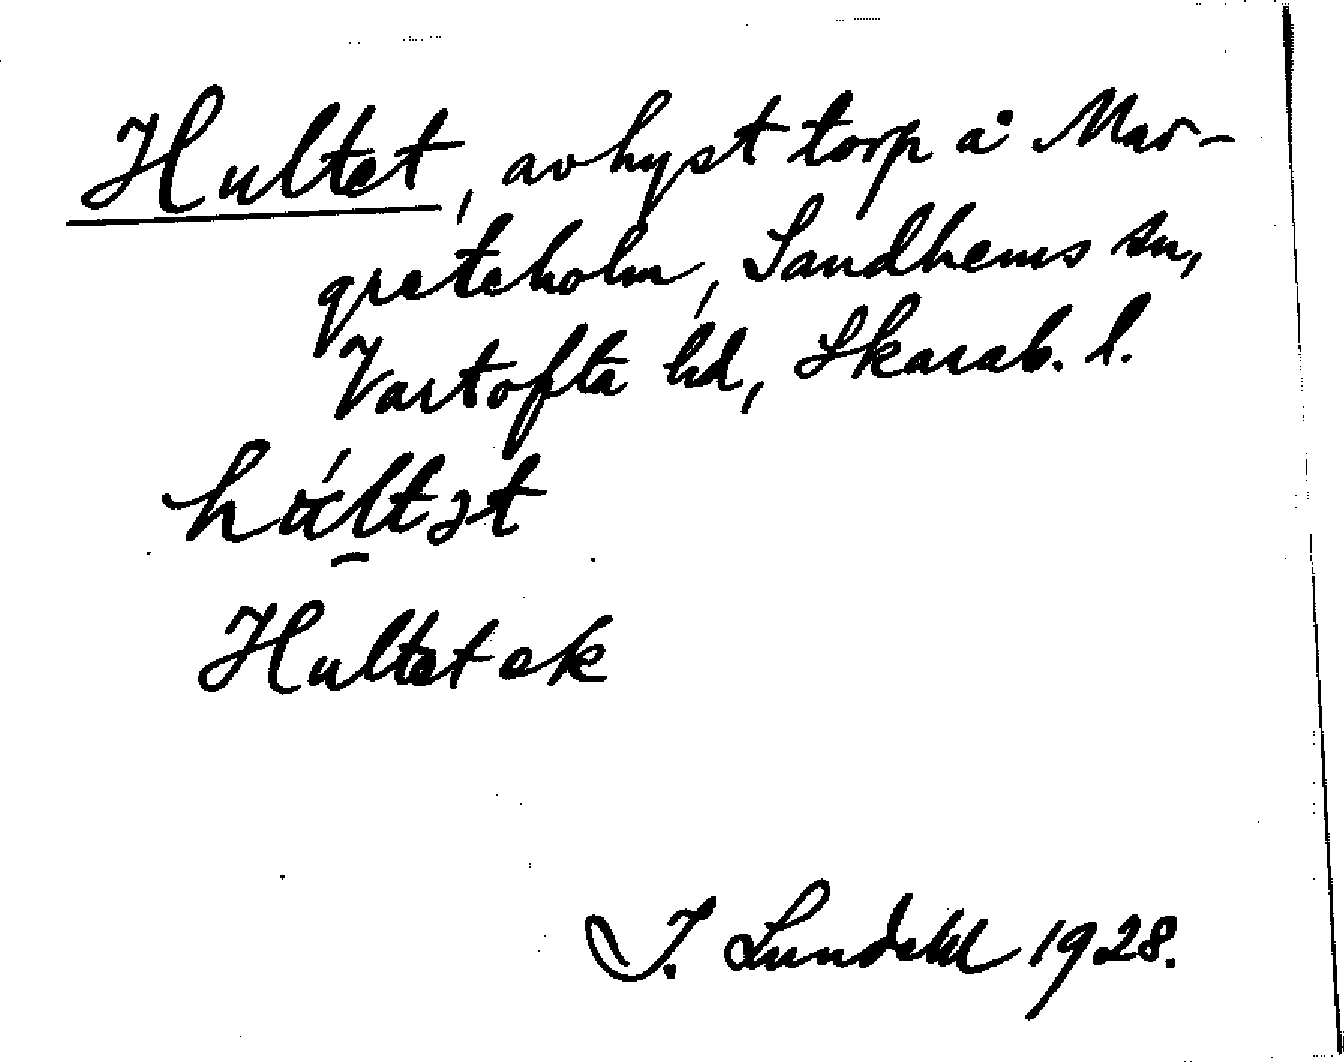 Hultet, avhyst torp å Mar-
greteholm, Sandhems sn,
Vartofta hd, Skarab. l.
Hultet ek
I. Lundahl 1928.